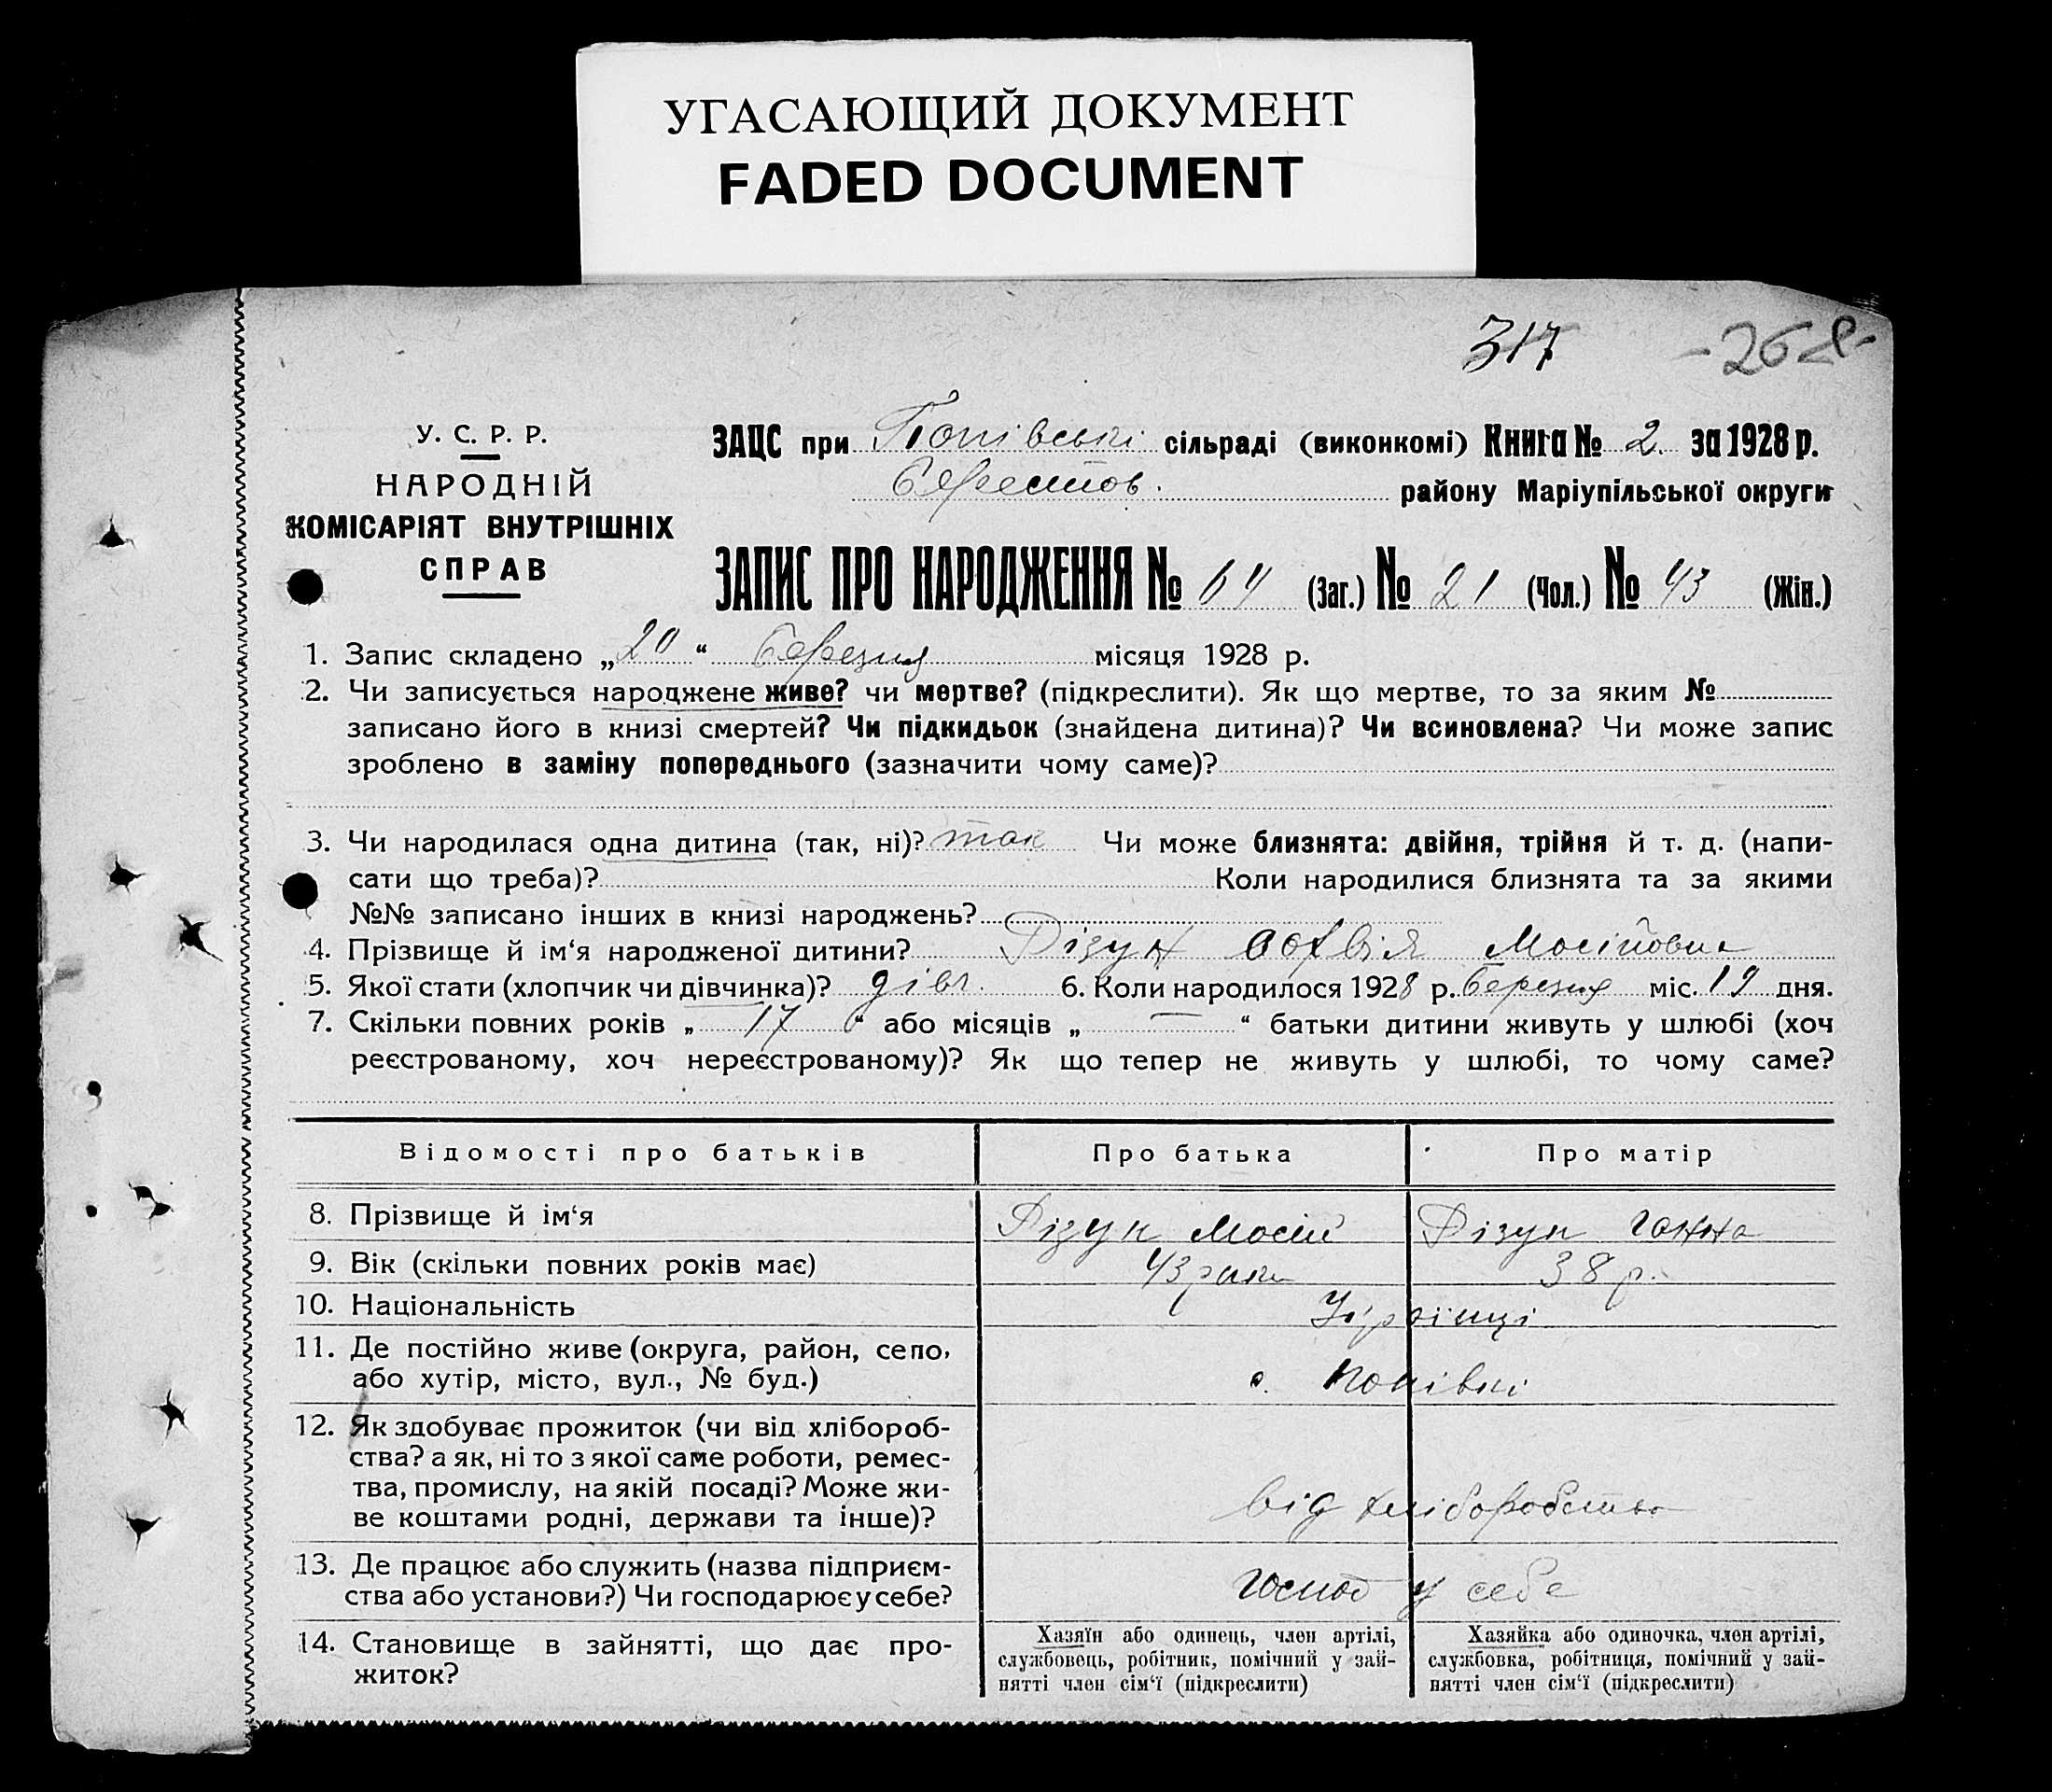 УГАСАЮЩИЙ ДОКУМЕНТ
FADED DOCUMENT
317 -268-
У. С. Р. Р.
НАРОДНІЙ
КОМІСАРІЯТ ВНУТРІШНІХ
СПРАВ
ЗАЦС при Попівські сільраді (виконкомі) Книга № 2. за 1928 р.
Берестов. району Маріупільської округи
ЗАПИС ПРО НАРОДЖЕННЯ № 64 (Заг.) № 21 (Чол.) № 43 (Жін.)
1. Запис складено „20“ березня місяця 1928 р.
2. Чи записується народжене живе? чи мертве? (підкреслити). Як що мертве, то за яким №
записано його в книзі смертей? Чи підкидьок (знайдена дитина)? Чи всиновлена? Чи може запис
зроблено в заміну попереднього (зазначити чому саме)?
3. Чи народилася одна дитина (так, ні)? так Чи може близнята: двійня, трійня й т. д. (напи-
сати що треба)? Коли народилися близнята та за якими
№№ записано інших в книзі народжень?
4. Прізвище й ім‘я народженої дитини? Дізун Мосійовна
5. Якої стати (хлопчик чи дівчинка)? дівч. 6. Коли народилося 1928 р. березня міс. 19 дня.
7. Скільки повних років „ 17 “ або місяців „ — “ батьки дитини живуть у шлюбі (хоч
реєстрованому, хоч нереєстрованому)? Як що тепер не живуть у шлюбі, то чому саме?
Відомості про батьків Про батька Про матір
8. Прізвище й ім‘я Дізун Мосій Дізун Ганна
9. Вік (скільки повних років має) 43 роки 38 р.
10. Національність Українці
11. Де постійно живе (округа, район, село,
або хутір, місто, вул., № буд.) с. Попівкі
12. Як здобуває прожиток (чи від хлібороб-
ства? а як, ні то з якої саме роботи, ремес-
тва, промислу, на якій посаді? Може жи-
ве коштами родні, держави та інше)? від хліборобства
13. Де працює або служить (назва підприєм-
ства або установи?) Чи господарює у себе? Господ у себе
14. Становище в зайнятті, що дає про-
житок?
Хазяїн або одинець, член артілі,
службовець, робітник, помічний у зай-
нятті член сім‘ї (підкреслити)
Хазяйка або одиночка, член артілі,
службовка, робітниця, помічний у зай-
нятті член сім‘ї (підкреслити)